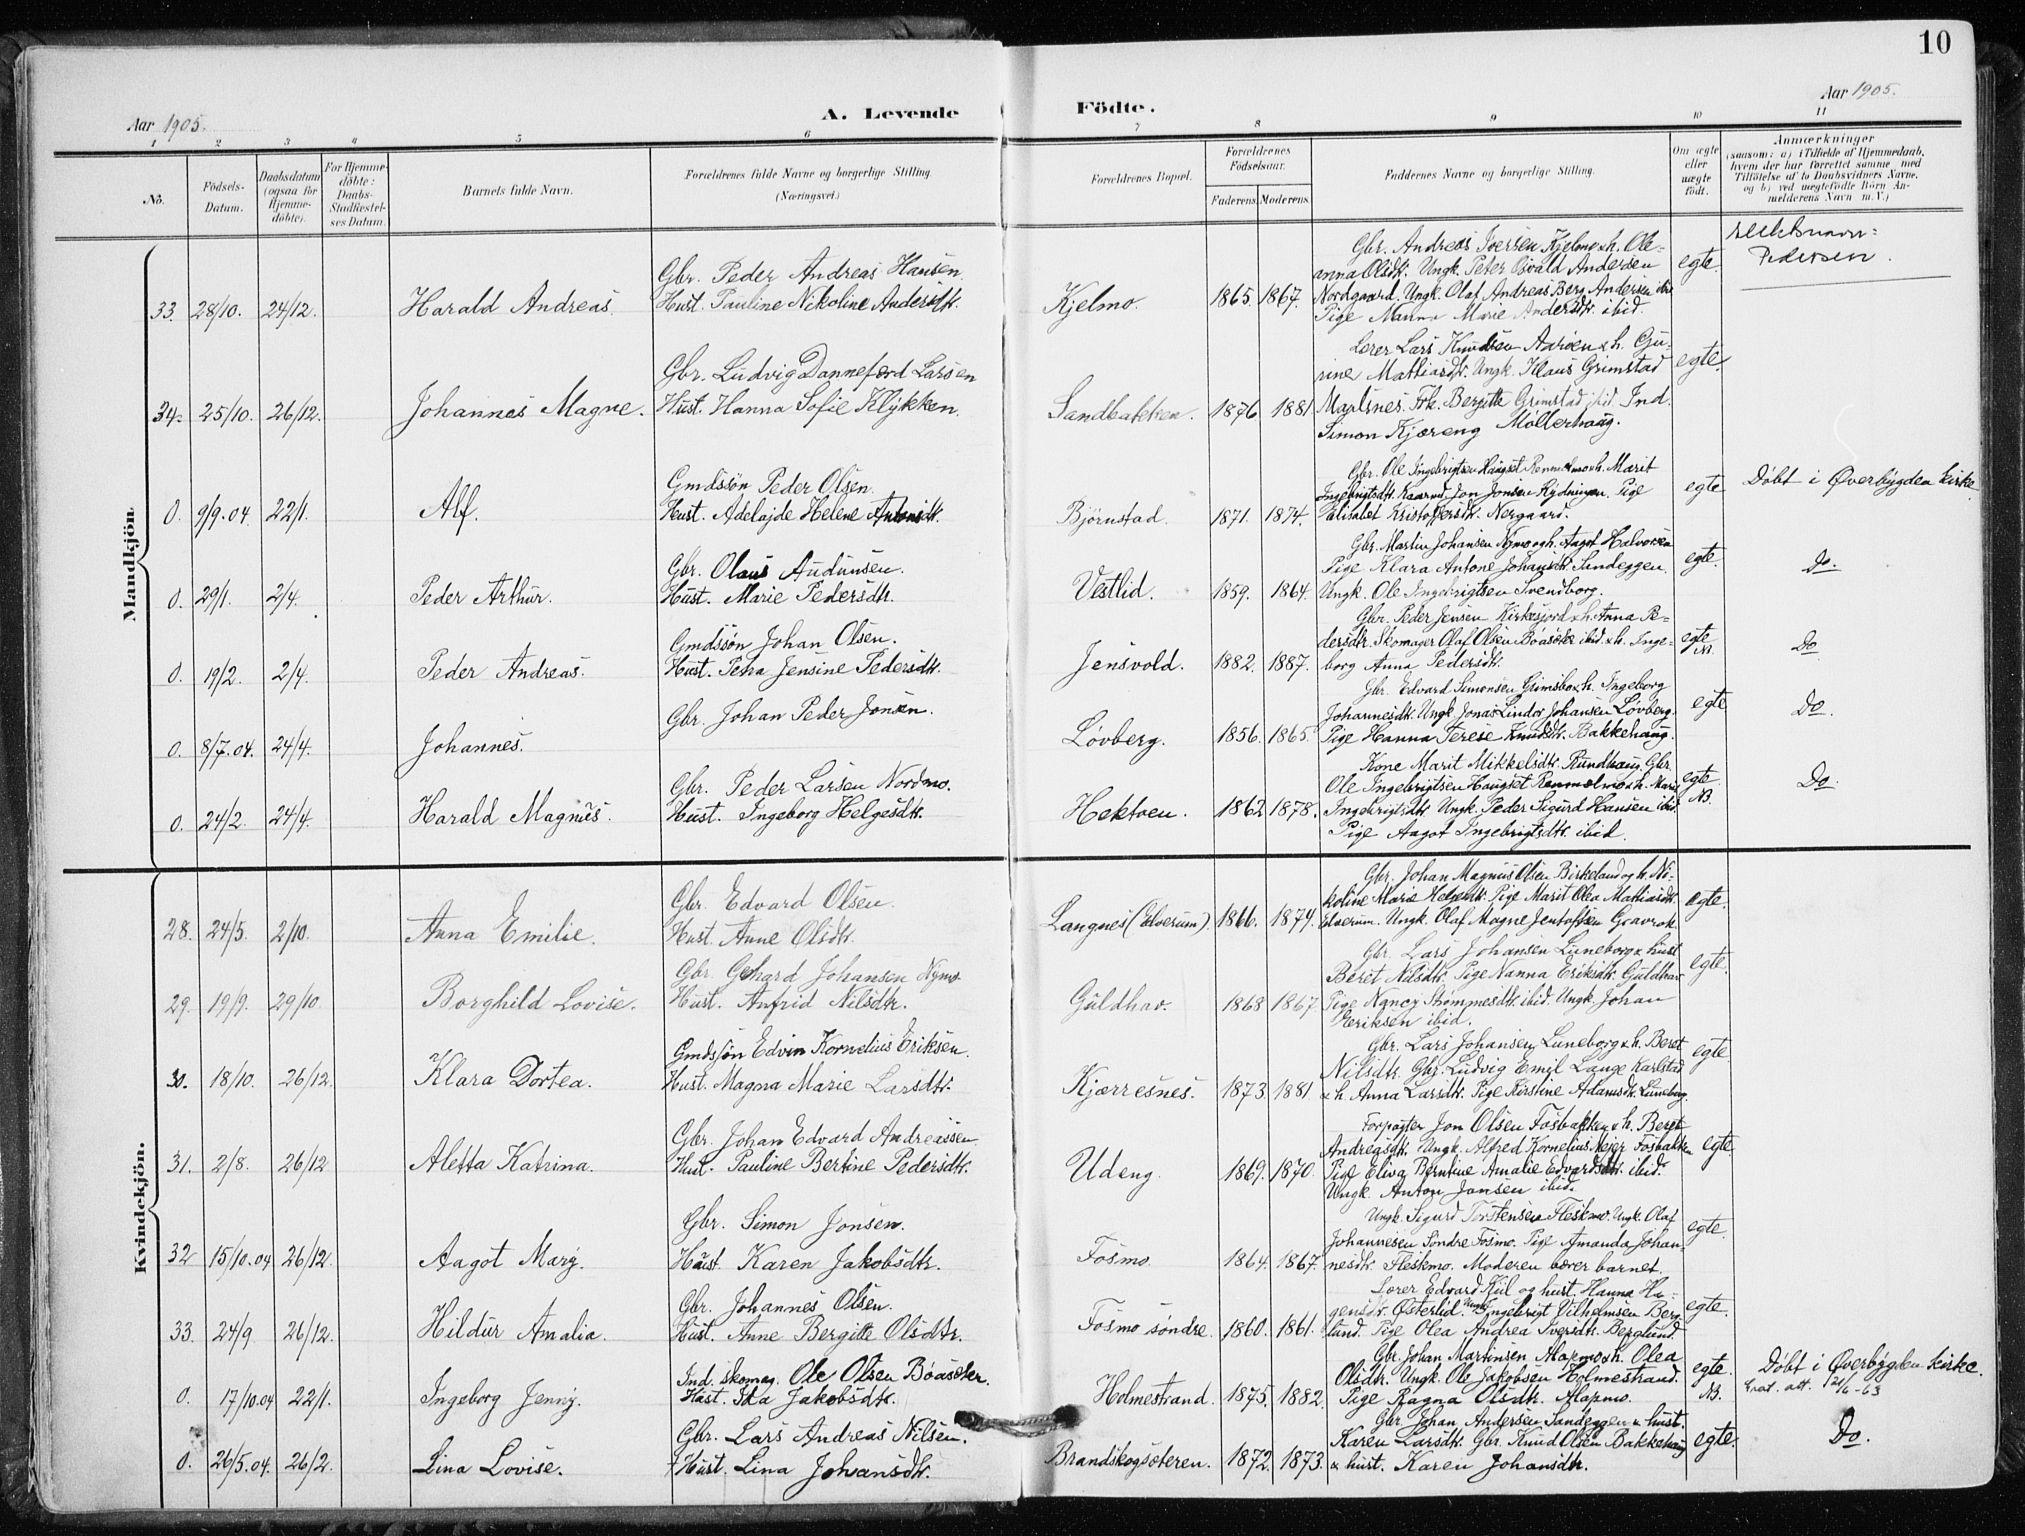 10
Aar 1905.
A. Levende
Födte.
Aar 1905.
1 2 3 4 5 6 7 8 9 10 11
No.
Födsels-Datum.
Daabsdatum (ogsaa for Hjemmedöbte).
For Hjemmedöbte: Daabs-Stadfæstelses Datum
Barnets fulde Navn.
Forældrenes fulde Navne og borgerlige Stilling. (Næringsvei.)
Forældrenes Bopæl.
Forældrenes Födselsaar.
Faderens. Moderens.
Faddernes Navne og borgerlige Stilling.
Om ægte eller uægte födt.
Anmærkninger
(saasom: a) i Tilfælde af Hjemmedaab, hvem der har forrettet samme med Tilföielse af to Daabsvidners Navne, og b) ved uægtefödte Börn Anmelderens Navn m. V.)
Mandkjön
33. 28/10. 24/12. Harald Andreas.
Gbr. Peder Andreas Hansen.
Hust. Pauline Nikoline Andersdtr.
Kjelmo. 1865. 1867.
Gbr. Andreas Iversen Kjelmo & h. Ole-
anna Olsdtr. Ungk. Peter Osvald Andersen
Nordgaard. Ungk. Olaf Andreas Berg Andersen ibid
Pige Manna Marie Andersdtr. ibid.
egte.
slektsnavn:
Pedersen.
34. 25/10. 26/12. Johannes Magne.
Gbr. Ludvig Danneford Larsen
Hust. Hanna Sofie Klykken.
Sandbakken. 1876 1881
Lærer Lars Knudsen Aarøen & h. Gu-
rine Mathiasdtr. Ungk. Klaus Grimstad
Frk. Bergitte Grimstad ibid. Ind.
Simon Kjæreng Møllerhaug.
egte.
0. 9/9.04. 22/1. Alf.
Gmdssøn Peder Olsen.
Hust. Adelajde Helene Antonsdtr.
Bjørnstad. 1871. 1874.
Gbr. Ole Ingebrigtsen Haugset Rennelmo & h. Marit
Ingebrigtsdtr. Jon Jonsen Rydningen. Pige
Elisabet Kristoffersdtr. Nergaard.
egte
Døbt i Øverbygden kirke.
0. 29/1. 2/4. Peder Arthur.
Gbr. Olaus Audunsen.
Hust. Marie Pedersdtr.
Vestlid. 1859. 1864.
Gbr. Martin Johansen Nymo og h. Aagot Halvorsen
Pige Klara Antone Johansdtr. Sundeggen.
Ungk. Ole Ingebrigtsen Svendborg.
egte.
Do.
0. 19/2. 2/4. Peder Andreas.
Gmdssøn Johan Olsen.
Hust. Petra Jensine Pedersdtr.
Jensvold. 1882. 1887.
Gbr. Peder Jensen Kirkesjord & h. Anna Pe-
dersdtr. Skomager Olaf Olsen Boasæter ibid & h. Inge-
borg Anna Pedersdtr.
egte
N.
Do
0. 8/7.04. 24/4. Johannes.
Gbr. Johan Peder Jonsen.
Løvberg. 1856. 1865.
Gbr. Edvard Simonsen Grimsbo & h. Ingeborg
Johannesdtr. Ungk. Jonas Lindor Johansen Løvberg.
Pige Hanna Terese Knudsdtr. Bakkehaug.
egte
Do.
0. 24/2. 24/4. Harald Magnus.
Gbr. Peder Larsen Nordmo.
Hust. Ingeborg Helgesdtr.
Hektoen. 1862 1878.
Kone Marit Mikkelsdtr. Rundhaug. Gbr.
Ole Ingebrigtsen Haugset Rennelmo & h. Marit
Ingebrigtsdtr. Ungk. Peder Sigurd Hansen ibid.
Pige Aagot Ingebrigtsdtr. ibid.
egte
N.
Do.
Kvindekjön.
28. 24/5. 2/10. Anna Emilie.
Gbr. Edvard Olsen.
Hust. Anne Olsdtr.
Langnes (Elverum). 1866. 1874.
Gbr. Johan Magnus Olsen Birkeland og h. Ni-
koline Marie Helgesdtr. Pige Marit Olea Mathiasdtr.
Elverum. Ungk. Olaf Magne Jentoftsen Gravrok.
egte.
29. 19/9. 29/10. Borghild Lovise.
Gbr. Gerhard Johansen Nymo
Hust. Anfrid Nilsdtr.
Guldhav. 1868 1867.
Gbr. Lars Johansen Luneborg & hust
Beret Nilsdtr. Pige Nanna Eriksdtr. Guldhav
Pige Nancy Strømmesdtr. ibid. Ungk. Johan
Eriksen ibid.
egte.
30. 18/10. 26/12. Klara Dortea.
Gmdssøn Edvin Kornelius Eriksen.
Hust. Magna Marie Larsdtr.
Kjærresnes. 1873. 1881.
Gbr. Lars Johansen Luneborg & h. Beret
Nilsdtr. Gbr. Ludvig Emil Lange Karlstad
& h. Anna Larsdtr. Pige Kirstine Adamsdtr. Luneborg.
egte
31. 2/8. 26/12 Aletta Katrina.
Gbr. Johan Edvard Andreassen.
Hust. Pauline Bertine Pedersdtr.
Udeng. 1869. 1870.
Forpagter Jon Olsen Fosbakken & h. Beret
Andreasdtr. Ungk. Alfred Kornelius Meier Fosbakken
Pige Eliva Berntine Amalie Edvardsdtr. ibid.
Ungk. Anton Jonsen ibid.
egte
32 15/10.04 26/12. Aagot Mary.
Gbr. Simon Jonsen.
Hust. Karen Jakobsdtr.
Fosmo 1864. 1867.
Ungk. Sigurd Torstensen Fleskmo. Ungk. Olaf
Johannesen Søndre Fosmo. Pige Amanda Johan-
nesdtr. Fleskmo. Moderen bærer barnet.
egte.
33. 24/9 26/12. Hildur Amalia.
Gbr. Johannes Olsen.
Hust. Anne Bergitte Olsdtr.
Fosmo søndre. 1860. 1861.
Lærer Edvard Kiil og hust. Hanna Ha-
gensdtr. Østerlid. Ungk. Ingebrigt Vilhelmsen Berg-
lund. Pige Olea Andrea Iversdtr. Berglund.
egte.
0. 17/10.04 22/1. Ingeborg Jenny.
Ind. skomag. Ole Olsen Boasæter.
Hust. Ida Jakobsdtr.
Holmestrand. 1875. 1882.
Gbr. Johan Martinsen Alapmo & h. Olea
Olsdtr. Ungk. Ole Jakobsen Holmestrand.
Pige Ragna Olsdtr. Alapmo.
egte.
N.
Døbt i Øverbygden kirke.
att. 21/6-63
0. 26/5.04. 26/2. Lina Lovise.
Gbr. Lars Andreas Nilsen.
Hust. Lina Johansdtr.
Brandskogsæteren. 1872. 1873.
Gbr. Johan Andersen Sandeggen & hust.
Karen Larsdtr. Gbr. Knud Olsen Bakkehaug
& hust. Karen Johansdtr.
egte.
Do.